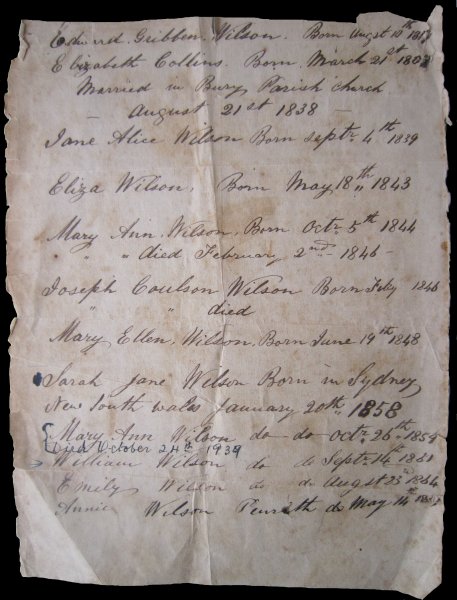 Edward Gribben Wilson. Born Augst 10th
Elizabeth Collins. Born. March 21st
Married in Bury Parish church
— August 21st 1838 —
Jane Alice Wilson Born Septr 4th 1839
Eliza Wilson. Born May 18th 1843
Mary Ann. Wilson. Born Octr 5th 1844
" " died February 2nd 1846 -
Joseph Coulson Wilson Born Feby 1846
" " died
Mary Ellen. Wilson. Born June 19th 1848
Sarah Jane Wilson Born in Sydney
New South wales January 20th 1858
Mary Ann Wilson do do Octr 26th 1859
Died October 24th 1939
William Wilson do do Septr 14th
Emily Wilson do do August 23 1864
Annie Wilson Penrith do May 14th